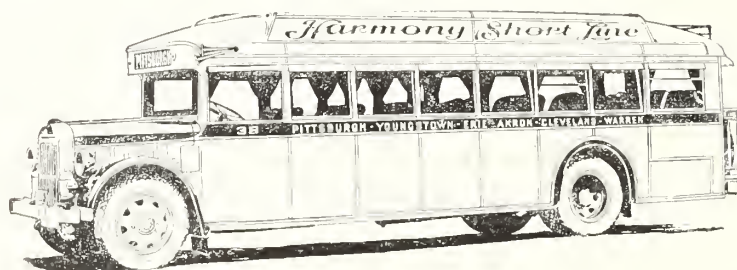 Harmony Short Line
PITTSBURGH
38 PITTSBURGH - YOUNGSTOWN - ERIE - AKRON - CLEVELAND - WARREN